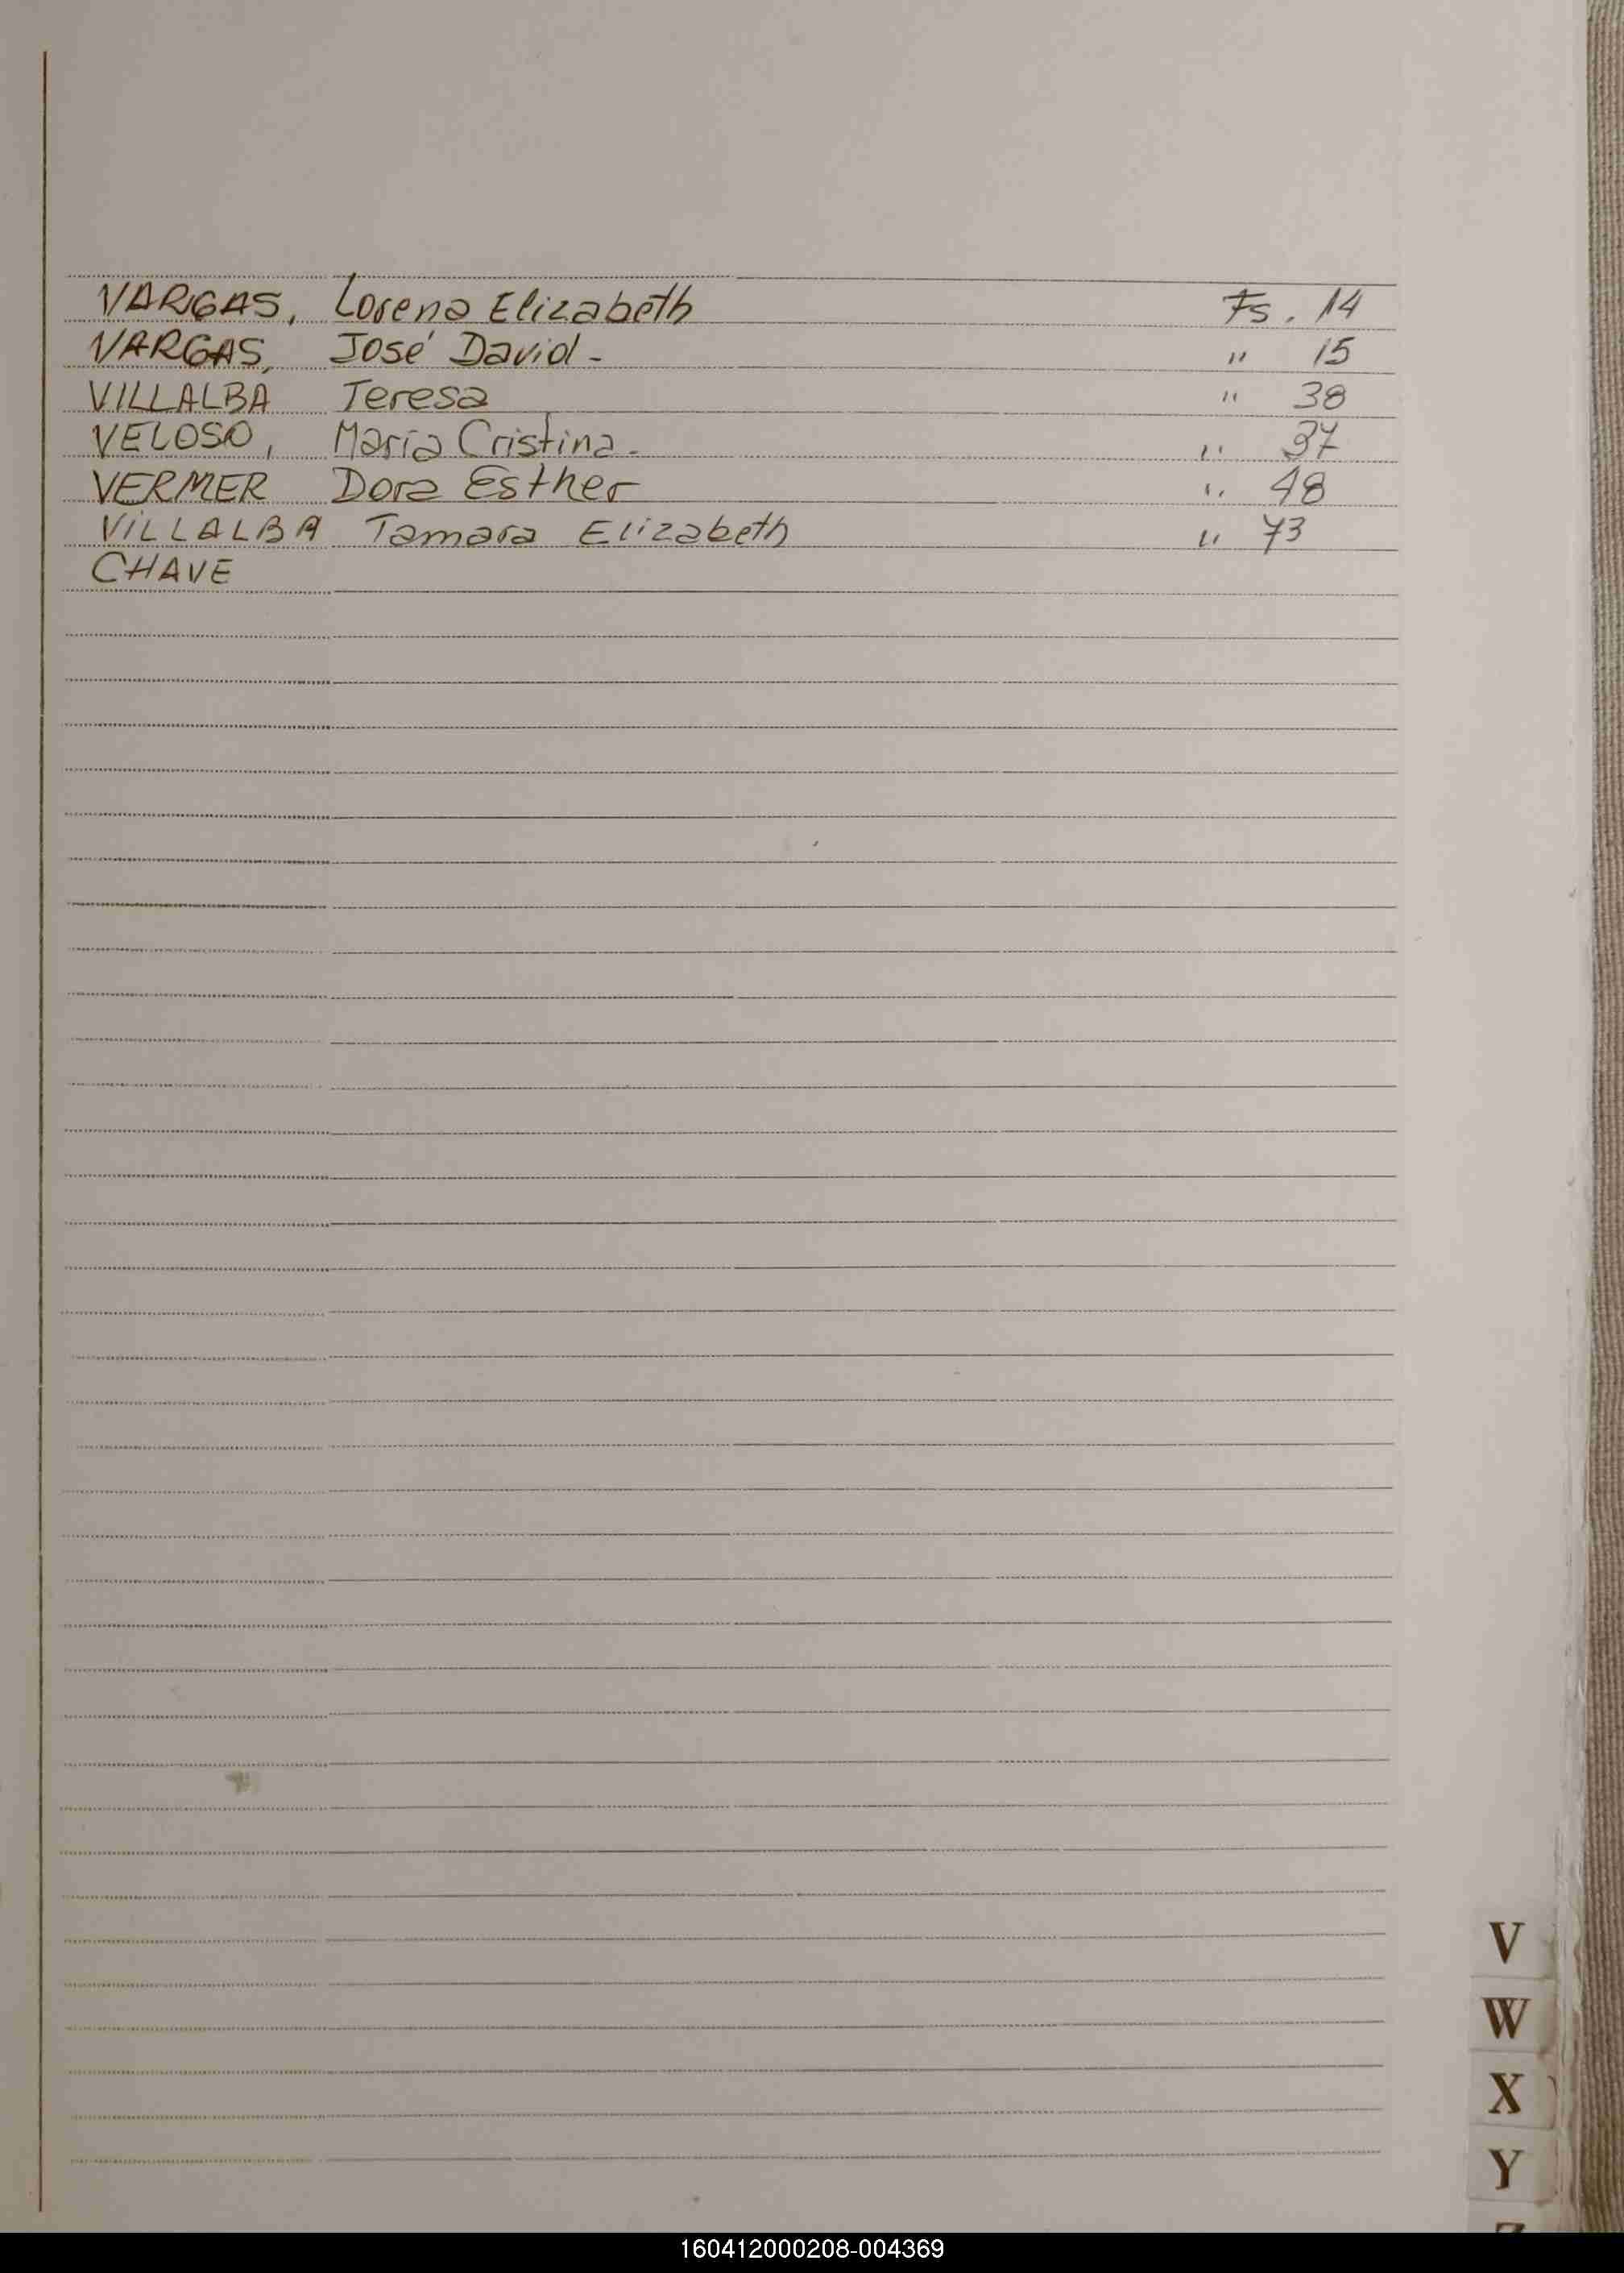 VARGAS, Lorena Elizabeth Fs. 14
VARGAS, José David - " 15
VILLALBA Teresa " 38
VELOSO, María Cristina. " 37
VERMER Dora Esther " 48
VILLALBA Tamara Elizabeth " 73
CHAVE
V
W
X
Y
160412000208-004369